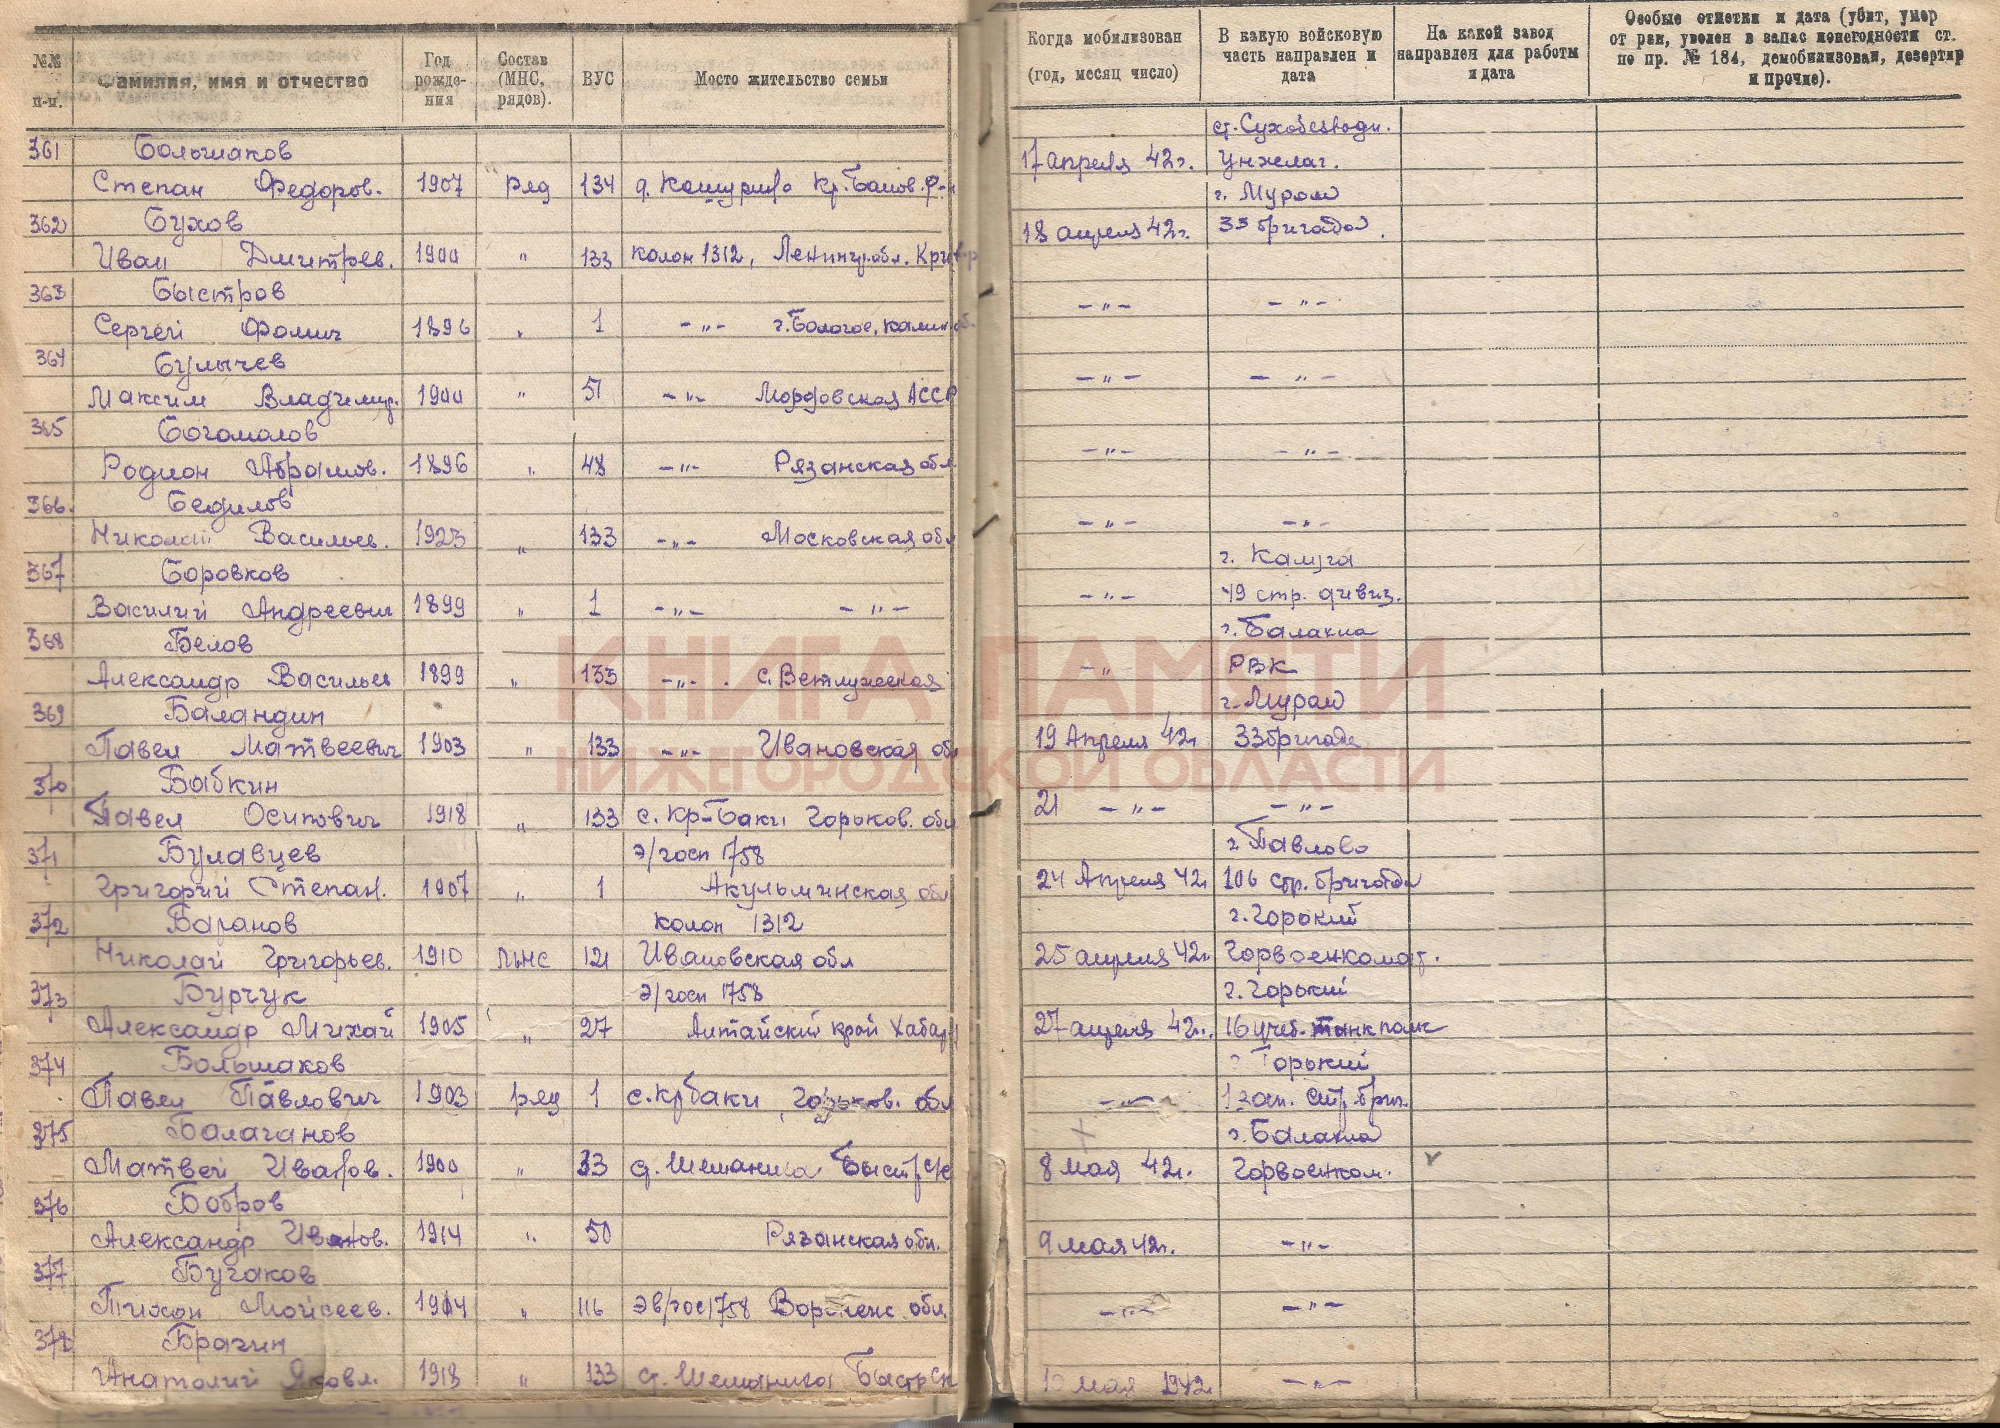 №№ п-п.
Фамилия, имя и отчество
Год рожде-ния
Состав (МНС, рядов).
ВУС
Место жительство семьи
Когда мобилизован (год, месяц число)
В какую войсковую часть направлен и дата
На какой завод направлен для работы и дата
Особые отметки и дата (убит, умер от ран, уволен в запас понегодности ст. по пр. № 184, демобилизован, дезертир и прочие).
ст. Сухобезводн.
361 Большаков 17 апреля 42г. Унжлаг.
Степан Федоров. 1907 ряд 134 д. Кашурино Кр. Баков. р-н г. Муром
362 Бухов 18 апреля 42г. 33 бригада
Иван Дмитрев. 1900 " 133 колон 1312, Ленингр обл.
363 Быстров – " – – " –
Сергей Фомич 1896 " 1 – " – г. Бологое, калин об.
364 Булычев – " – – " –
Максим Владимир. 1900 " 51 – " – Мордовская АССР
365 Богомолов – " – – " –
Родион Абрамов. 1896 " 48 – " – Рязанская обл.
366. Бедилов – " – – " –
Николай Васильев. 1923 " 133 – " – Московская обл
г. Калуга
367 Боровков – " – 49 стр. дивиз.
Василий Андреевич 1899 " 1 – " – – " –
г. Балахна
368 Белов – " РВК
Александр Васильев 1899 " 133 – " – . с. Ветлужская
г. Муром
369 Баландин 19 Апреля 42г 33 бригада
Павел Матвеевич 1903 " 133 – " – Ивановская обл
370 Бабкин 21 – " – – " –
Павел Осипович 1918 " 133 с. Кр-Баки Горьков. обл
г. Павлово
371 Булавцев э/госп 1758 24 Апреля 42г 106 стр. бригада
Григорий Степан. 1907 " 1 Акульминская обл
г. Горький
372 Баранов колон 1312 25 апреля 42г. Горвоенкомат.
Николай Григорьев. 1910 мнс 121 Ивановская обл
г. Горький
373 Бурчук э/госп 1758 27 апреля 42г. 16 учеб. танк полк
Александр Михай 1905 " 27 Алтайский край Хабар
г Горький
374 Большаков – " – 1 зап. стр. бриг.
Павел Павлович 1903 ряд 1 с. кр баки , Горьков. обл
г. Балахна
375 Балаганов 8 мая 42г. Горвоенком.
Матвей 1900 " 33 д. Шеманиха Быстрск
376 Бобров 9 мая 42г. – " –
Александр Иванов. 1914 " 50 Рязанская обл.
377 Бугаков – " – – " –
Тихон Мойсеев. 1904 " 116 эв/гос 1758 Воронежс. обл.
378 Брагин 10 мая 1942г. – " –
Анатолий Яковл. 1918 " 133 д. Шеманиха Быстрск
КНИГА ПАМЯТИ
НИЖЕГОРОДСКОЙ ОБЛАСТИ